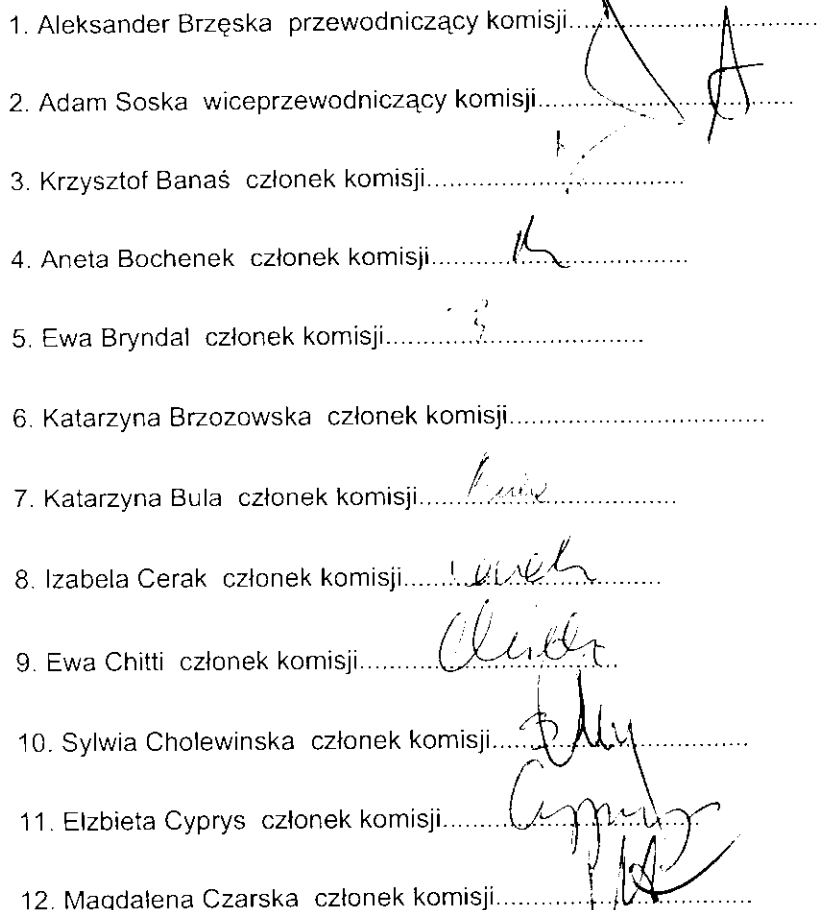 1. Aleksander Brzęska przewodniczący komisji...............................
2. Adam Soska wiceprzewodniczący komisji................................
3. Krzysztof Banaś członek komisji................................
4. Aneta Bochenek członek komisji................................
5. Ewa Bryndal członek komisji................................
6. Katarzyna Brzozowska członek komisji................................
7. Katarzyna Bula członek komisji................................
8. Izabela Cerak członek komisji................................
9. Ewa Chitti członek komisji................................
10. Sylwia Cholewinska członek komisji................................
11. Elzbieta Cyprys członek komisji................................
12. Magdalena Czarska członek komisji................................